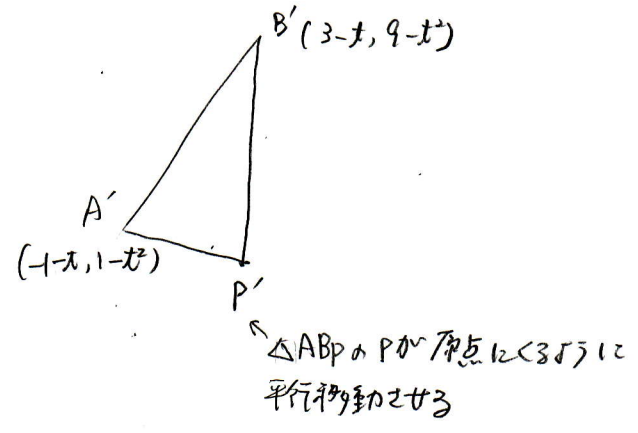 B′(3-t, 9-t²)
A′
(-1-t, 1-t²)
P′
△ABPのPが原点にくるように
平行移動させる